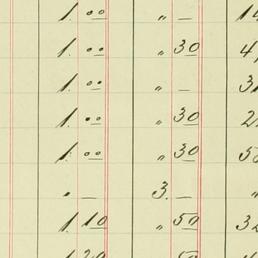 1. 00 „ — 14
1. 00 „ 30 4
1. 00 „ — 3
1. 00 „ 30 2
1. 00 „ 30 5
. — 3. — „
1. 10 „ 50 32
1. 20 „ 50 4